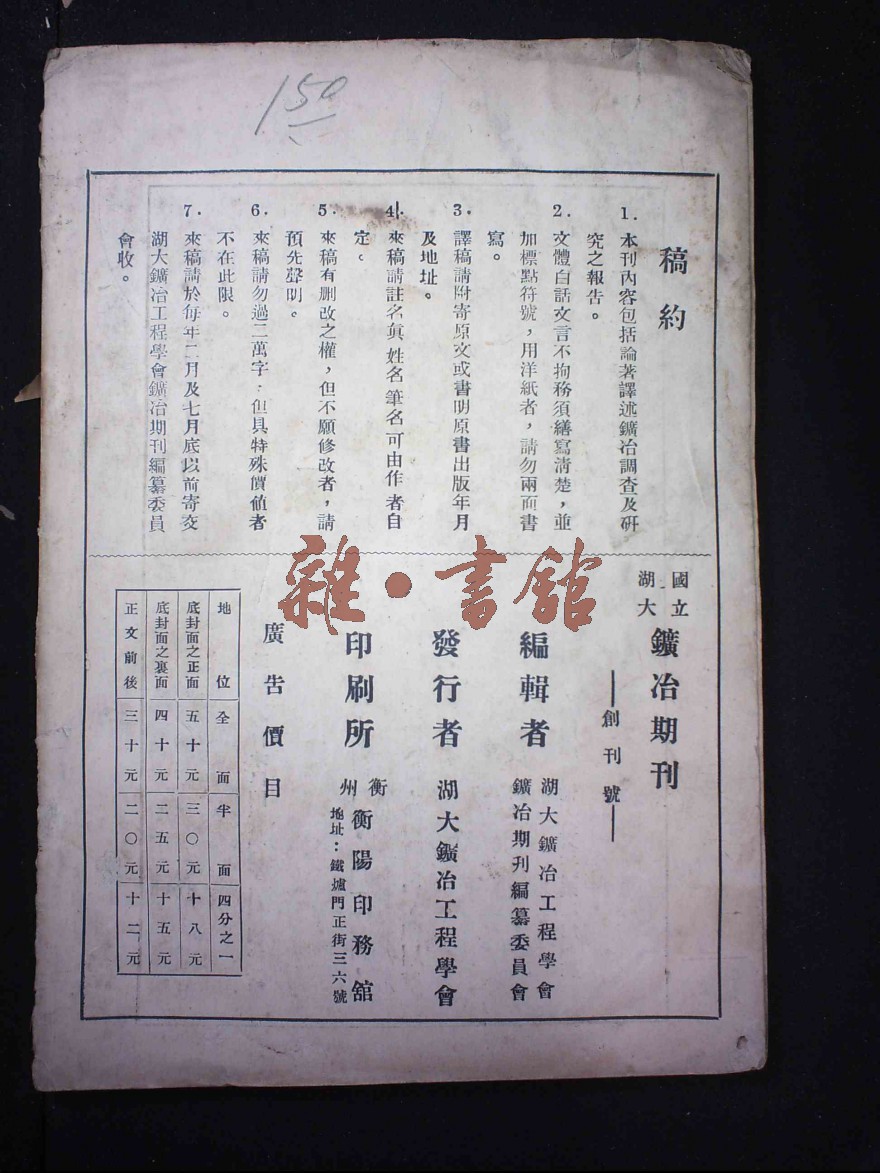 150
稿約
1. 本刊內容包括論著譯述鑛冶調查及研
究之報告。
2. 文體白話文言不拘務須繕寫清楚，並
加標點符號，用洋紙者，請勿兩面書
寫。
3. 譯稿請附寄原文或書明原書出版年月
及地址。
4. 來稿請註名眞姓名筆名可由作者自
定。
5. 來稿有刪改之權，但不願修改者，請
預先聲明。
6. 來稿請勿過二萬字，但具特殊價値者
不在此限。
7. 來稿請於每年二月及七月底以前寄交
湖大鑛冶工程學會鑛冶期刊編纂委員
會收。
國立
湖大
鑛冶期刊
——創刊號——
編輯者
湖大鑛冶工程學會
鑛冶期刊編纂委員會
發行者 湖大鑛冶工程學會
印刷所
衡州
衡陽印務舘
地址：鐵爐門正街三六號
廣告價目
地位 全面 半面 四分之一
底封面之正面 五十元 三〇元 十八元
底封面之裏面 四十元 二五元 十五元
正文前後 三十元 二〇元 十二元
雜·書舘